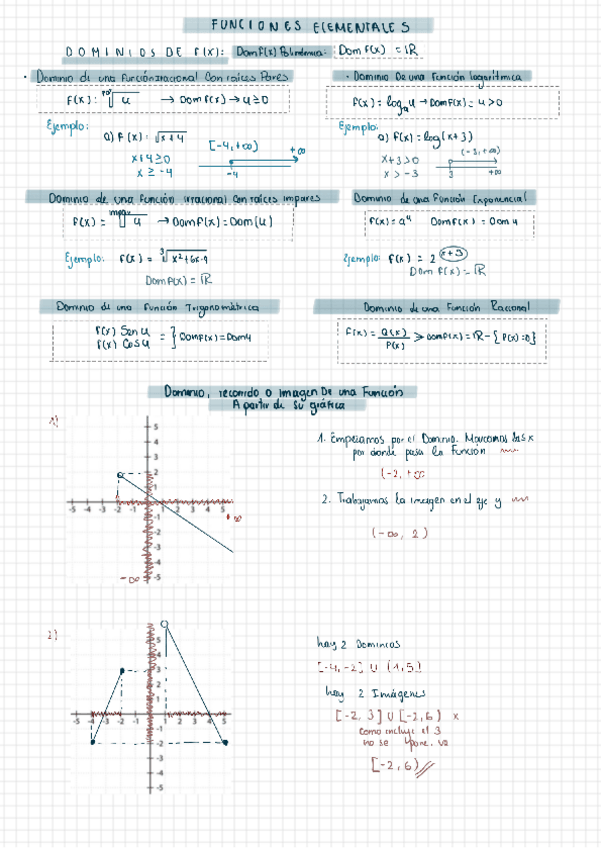 FUNCIONES ELEMENTALES
DOMINIOS DE F(X): Dom F(x) Polinómica: Dom F(x) = ℝ
· Dominio de una Función irracional Con raíces Pares
F(x): par√u → Dom F(x) → u ≥ 0
Ejemplo:
a) F(x): √x+4
[-4,+∞)
x+4 ≥ 0
x ≥ -4
-4
+∞
· Dominio De una Función logarítmica
F(x) = logₐu → Dom F(x) = u > 0
Ejemplo:
a) F(x) = log(x+3)
x+3 > 0
x > -3
3
+∞
Dominio de una Función irracional Con raíces impares
F(x) = impar√u → Dom F(x) = Dom(u)
Ejemplo: F(x) = ³√x²+6x-9
Dom F(x) = ℝ
Dominio de una Función Exponencial
F(x) = aᵘ Dom F(x) = Dom u
Ejemplo: F(x) = 2 x+3
Dom F(x) = ℝ
Dominio de una Función Trigonométrica
F(x) Sen u
F(x) Cos u = } Dom F(x) = Dom u
Dominio de una Función Racional
F(x) = Q(x)/P(x) > Dom F(x) = ℝ - { P(x) = 0 }
Dominio, recorrido o imagen De una Función
A partir de su gráfica
1)
5
4
3
2
1
-5 -4 -3 -2 -1 1 2 3 4 5
+∞
-1
-2
-3
-4
-∞ -5
1. Empezamos por el Dominio. Marcamos las x
por donde pasa la Función
(-2, +∞
2. Trabajamos la imagen en el eje y
(-∞, 2)
2)
5
4
3
2
1
-5 -4 -3 -2 -1 1 2 3 4 5
-1
-2
-3
-4
-5
hay 2 Dominios
[-4,-2] U (1,5]
hay 2 Imágenes
[-2, 3] U [-2,6) x
como incluye el 3
no se pone. va
[-2, 6)